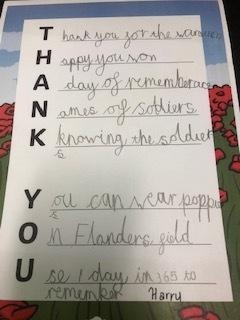 Thank you for the
Happy you won
A day of rememberance
Names of soldiers
Knowing the soldier
s
You can wear poppie
s
On Flanders field
Use 1 day in 365 to
remember Harry